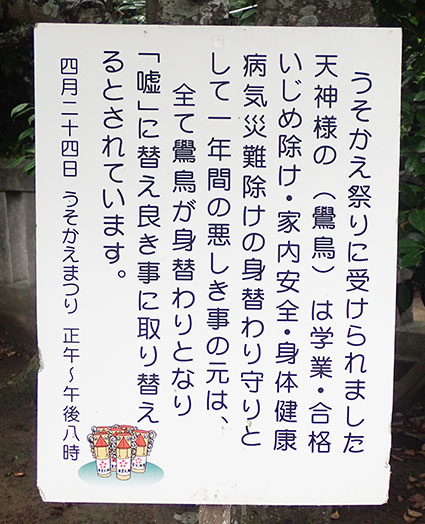 うそかえ祭りに受けられました
天神様の（鷽鳥）は学業・合格
いじめ除け・家内安全・身体健康
病気災難除けの身替わり守りと
して一年間の悪しき事の元は、
全て鷽鳥が身替わりとなり
「嘘」に替え良き事に取り替え
るとされています。
四月二十四日 うそかえまつり 正午～午後八時